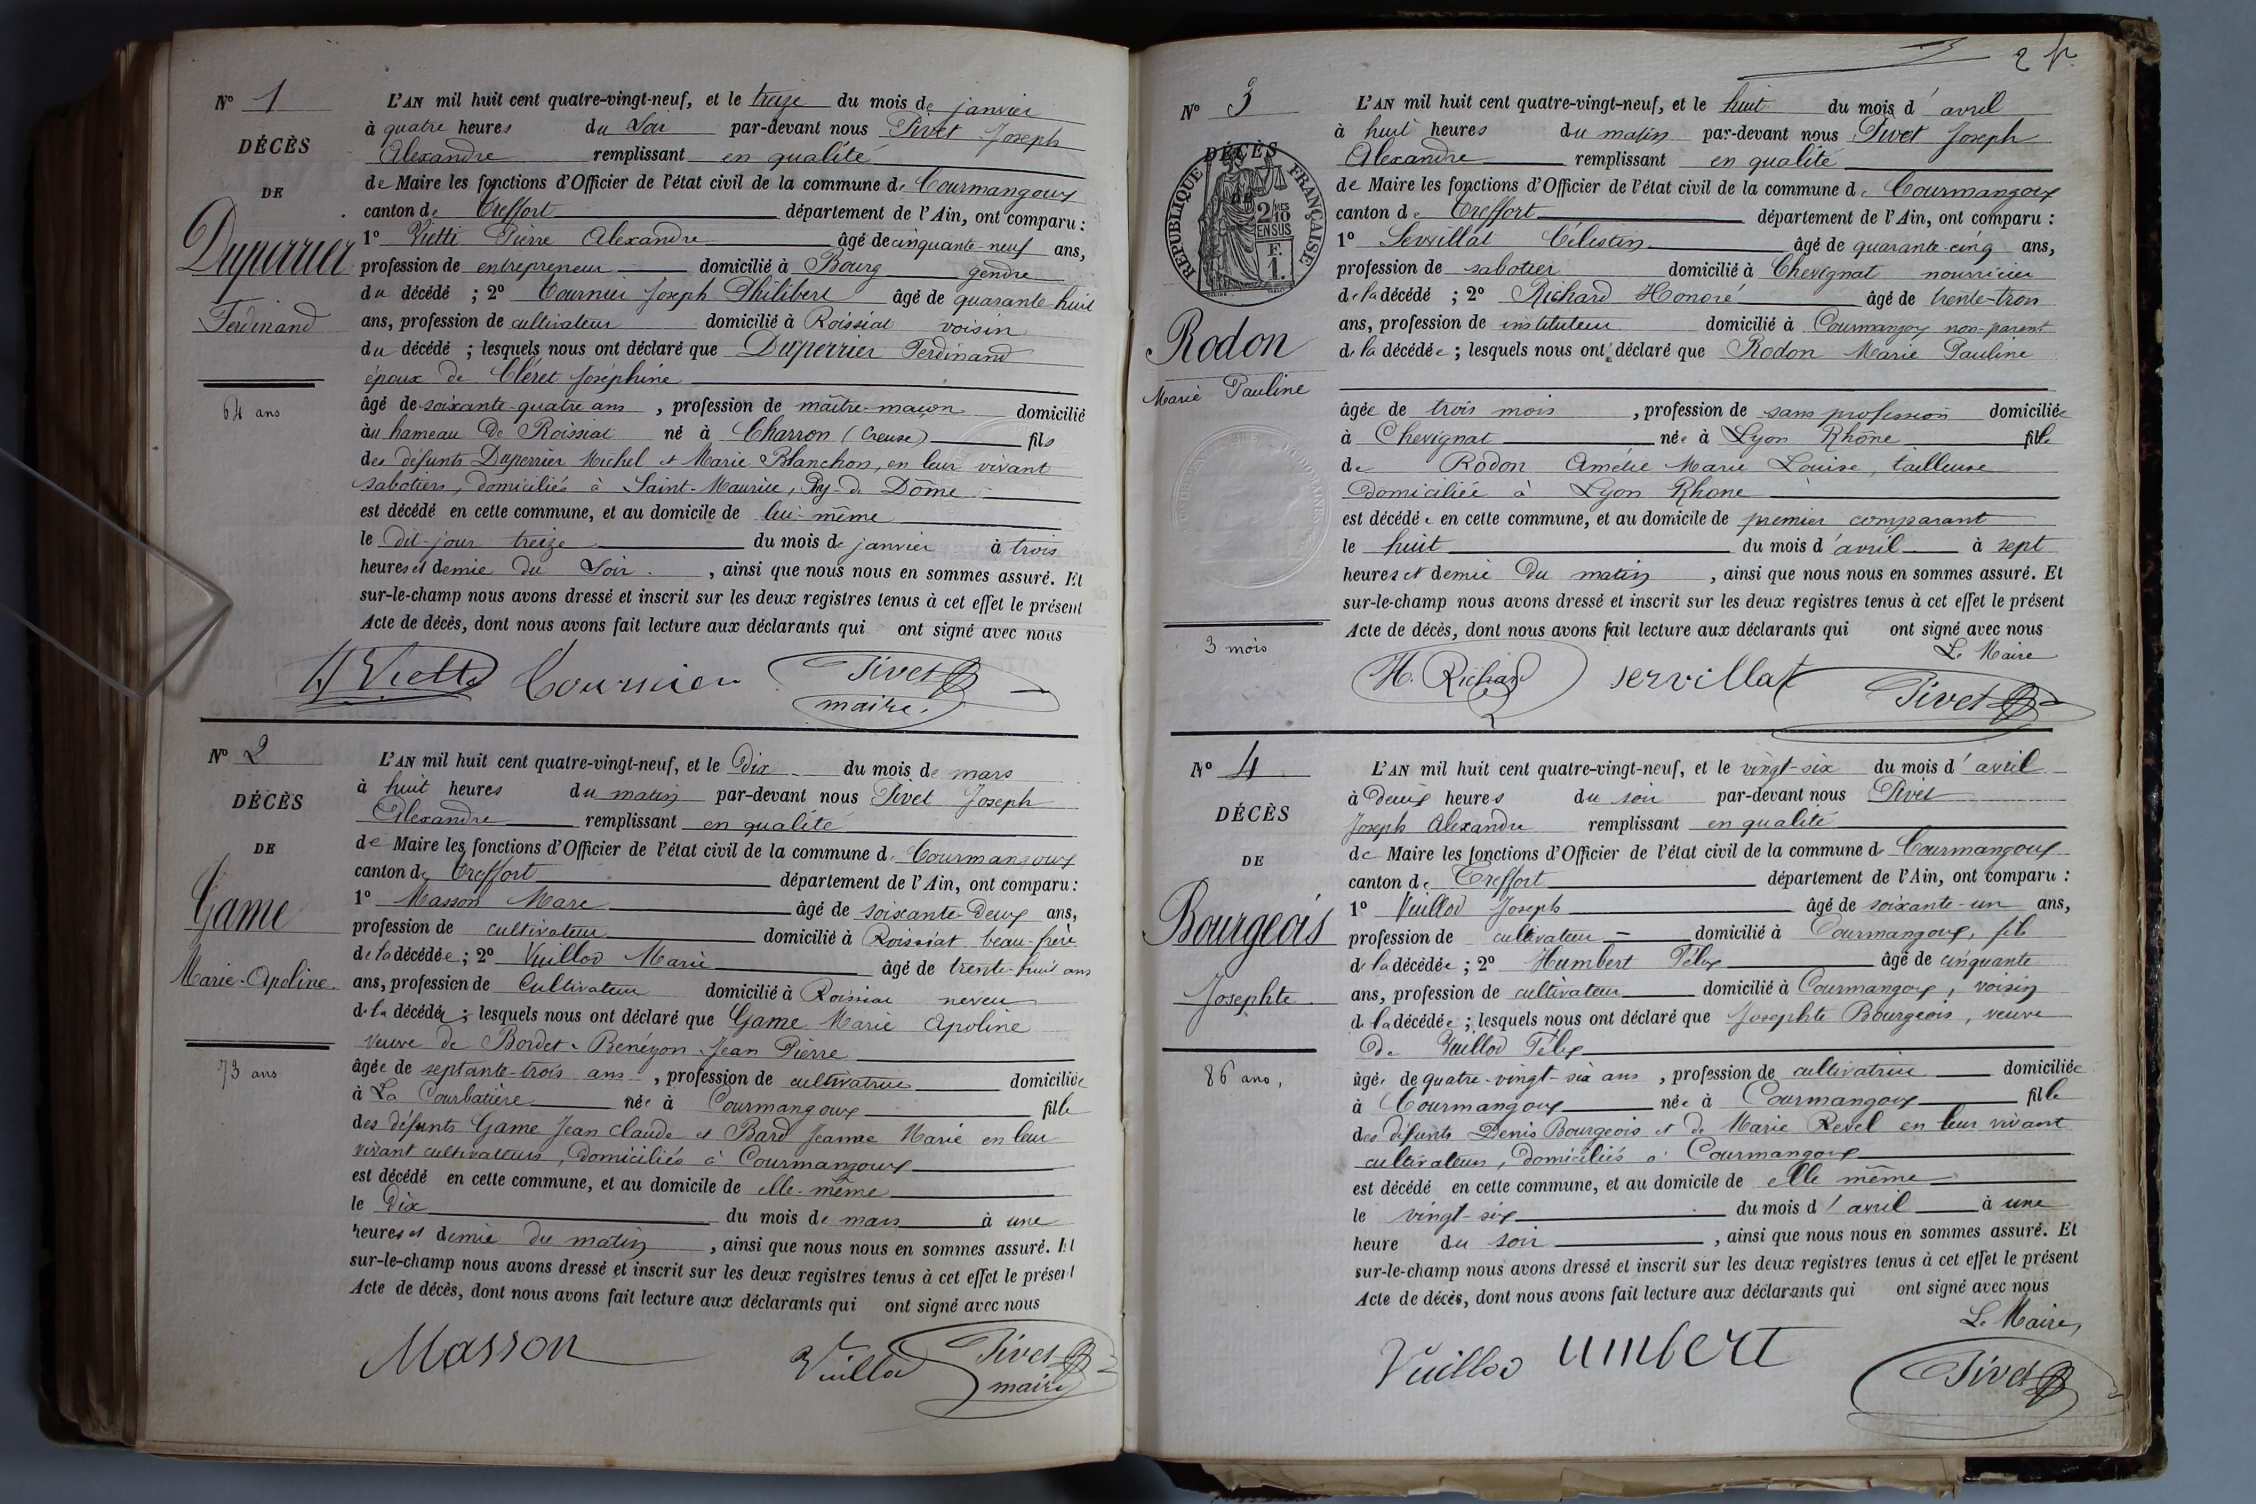 N° 1
DÉCÈS
DE
Duperrier
Ferdinand
64 ans
L'AN mil huit cent quatre-vingt-neuf, et le treize du mois de janvier
à quatre heures du Soir par-devant nous Pivet Joseph
Alexandre remplissant en qualité
de Maire les fonctions d'Officier de l'état civil de la commune de Courmangoux
canton de Treffort département de l'Ain, ont comparu :
1° Vietti Pierre Alexandre âgé de cinquante-neuf ans,
profession de entrepreneur domicilié à Bourg gendre
du décédé ; 2° Cournier Joseph Philibert âgé de quarante-huit
ans, profession de cultivateur domicilié à Roissiat voisin
du décédé ; lesquels nous ont déclaré que Duperrier Ferdinand
époux de Cléret Joséphine
âgé de soixante-quatre ans , profession de maître-maçon domicilié
au hameau de Roissiat né à Charron (Creuse) fils
des défunts Duperrier Michel et Marie Blanchon, en leur vivant
sabotiers, domiciliés à Saint-Maurice, Puy-de Dôme
est décédé en cette commune, et au domicile de lui-même
le dit-jour treize du mois de janvier à trois
heures et demie du Soir , ainsi que nous nous en sommes assuré. Et
sur-le-champ nous avons dressé et inscrit sur les deux registres tenus à cet effet le présent
Acte de décès, dont nous avons fait lecture aux déclarants qui ont signé avec nous
Vietti Cournier Pivet
maire.
N° 2
DÉCÈS
DE
Game
Marie-Apoline
73 ans
L'AN mil huit cent quatre-vingt-neuf, et le Dix du mois de mars
à huit heures du matin par-devant nous Pivet Joseph
Alexandre remplissant en qualité
de Maire les fonctions d'Officier de l'état civil de la commune de Courmangoux
canton de Treffort département de l'Ain, ont comparu :
1° Masson Marc âgé de soixante-deux ans,
profession de cultivateur domicilié à Roissiat beau-frère
de la décédée ; 2° Vuillod Marie âgé de trente-huit ans
ans, profession de Cultivateur domicilié à Roissiat neveu
de la décédée ; lesquels nous ont déclaré que Game Marie Apoline
veuve de Bordet-Benéyon Jean Pierre
âgée de septante-trois ans , profession de cultivatrice domiciliée
à La Courbatière née à Courmangoux fille
des défunts Game Jean Claude et Bard Jeanne Marie en leur
vivant cultivateurs, domiciliés à Courmangoux
est décédé en cette commune, et au domicile de elle-même
le Dix du mois de mars à une
heures et demie du matin , ainsi que nous nous en sommes assuré. Et
sur-le-champ nous avons dressé et inscrit sur les deux registres tenus à cet effet le présent
Acte de décès, dont nous avons fait lecture aux déclarants qui ont signé avec nous
Masson Vuillod Pivet
maire
2
N° 3
DÉCÈS
DE
RÉPUBLIQUE FRANÇAISE
2 MES 10
EN SUS
F.
1.
Rodon
Marie Pauline
3 mois
L'AN mil huit cent quatre-vingt-neuf, et le huit du mois d'avril
à huit heures du matin par-devant nous Pivet Joseph
Alexandre remplissant en qualité
de Maire les fonctions d'Officier de l'état civil de la commune de Courmangoux
canton de Treffort département de l'Ain, ont comparu :
1° Servillat Célestin âgé de quarante-cinq ans,
profession de sabotier domicilié à Chevignat nourricier
de la décédé ; 2° Richard Honoré âgé de trente-trois
ans, profession de instituteur domicilié à Courmangoux non-parent
de la décédée ; lesquels nous ont déclaré que Rodon Marie Pauline
âgée de trois mois , profession de sans profession domiciliée
à Chevignat née à Lyon Rhône fille
de Rodon Amélie Marie Louise, tailleuse
domiciliée à Lyon Rhone
est décédée en cette commune, et au domicile de premier comparant
le huit du mois d'avril à sept
heures et demie du matin , ainsi que nous nous en sommes assuré. Et
sur-le-champ nous avons dressé et inscrit sur les deux registres tenus à cet effet le présent
Acte de décès, dont nous avons fait lecture aux déclarants qui ont signé avec nous
Le Maire
H. Richard servillat Pivet
N° 4
DÉCÈS
DE
Bourgeois
Josephte
86 ans,
L'AN mil huit cent quatre-vingt-neuf, et le vingt-six du mois d'avril
à deux heures du soir par-devant nous Pivet
Joseph Alexandre remplissant en qualité
de Maire les fonctions d'Officier de l'état civil de la commune de Courmangoux
canton de Treffort département de l'Ain, ont comparu :
1° Vuillod Joseph âgé de soixante-un ans,
profession de cultivateur domicilié à Courmangoux, fils
de la décédée ; 2° Humbert Félix âgé de cinquante
ans, profession de cultivateur domicilié à Courmangoux, voisin
de la décédée ; lesquels nous ont déclaré que Josephte Bourgeois, veuve
de Vuillod Félix
âgée de quatre-vingt-six ans , profession de cultivatrice domiciliée
à Courmangoux née à Courmangoux fille
des défunts Denis Bourgeois et de Marie Revel en leur vivant
cultivateurs, domiciliés à Courmangoux
est décédé en cette commune, et au domicile de elle même
le vingt-six du mois d'avril à une
heure du soir , ainsi que nous nous en sommes assuré. Et
sur-le-champ nous avons dressé et inscrit sur les deux registres tenus à cet effet le présent
Acte de décès, dont nous avons fait lecture aux déclarants qui ont signé avec nous
Le Maire,
Vuillod umbert Pivet